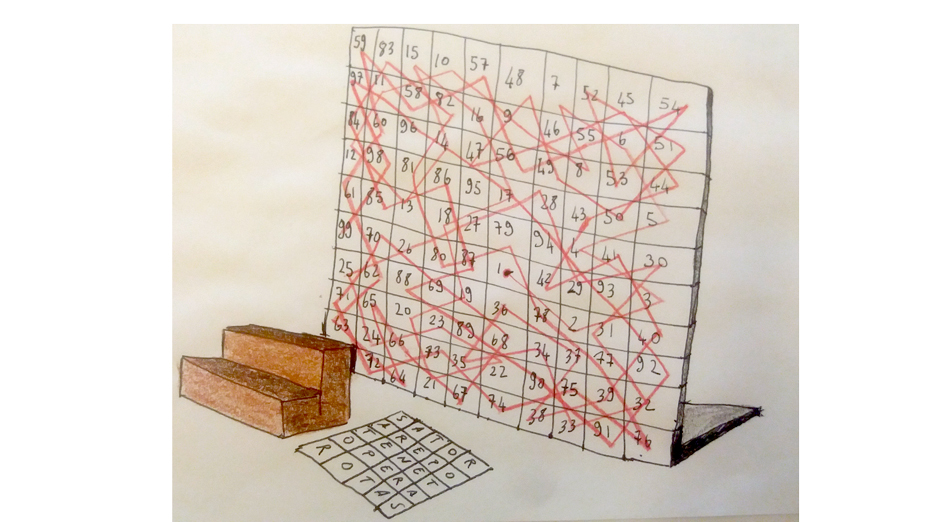 59 83 15 10 57 48 7 52 45 54
97 11 58 82 16 9 46 55 6 51
84 60 96 14 47 56 49 8 53 44
12 98 81 86 95 17 28 43 50 5
61 85 13 18 27 79 94 4 41 30
99 70 26 80 87 1 42 29 93 3
25 62 88 69 19 36 78 2 31 40
71 65 20 23 89 68 34 37 77 92
63 24 66 73 35 22 90 75 39 32
72 64 21 67 74 38 33 91 76
SATOR
AREPO
TENET
OPERA
ROTAS